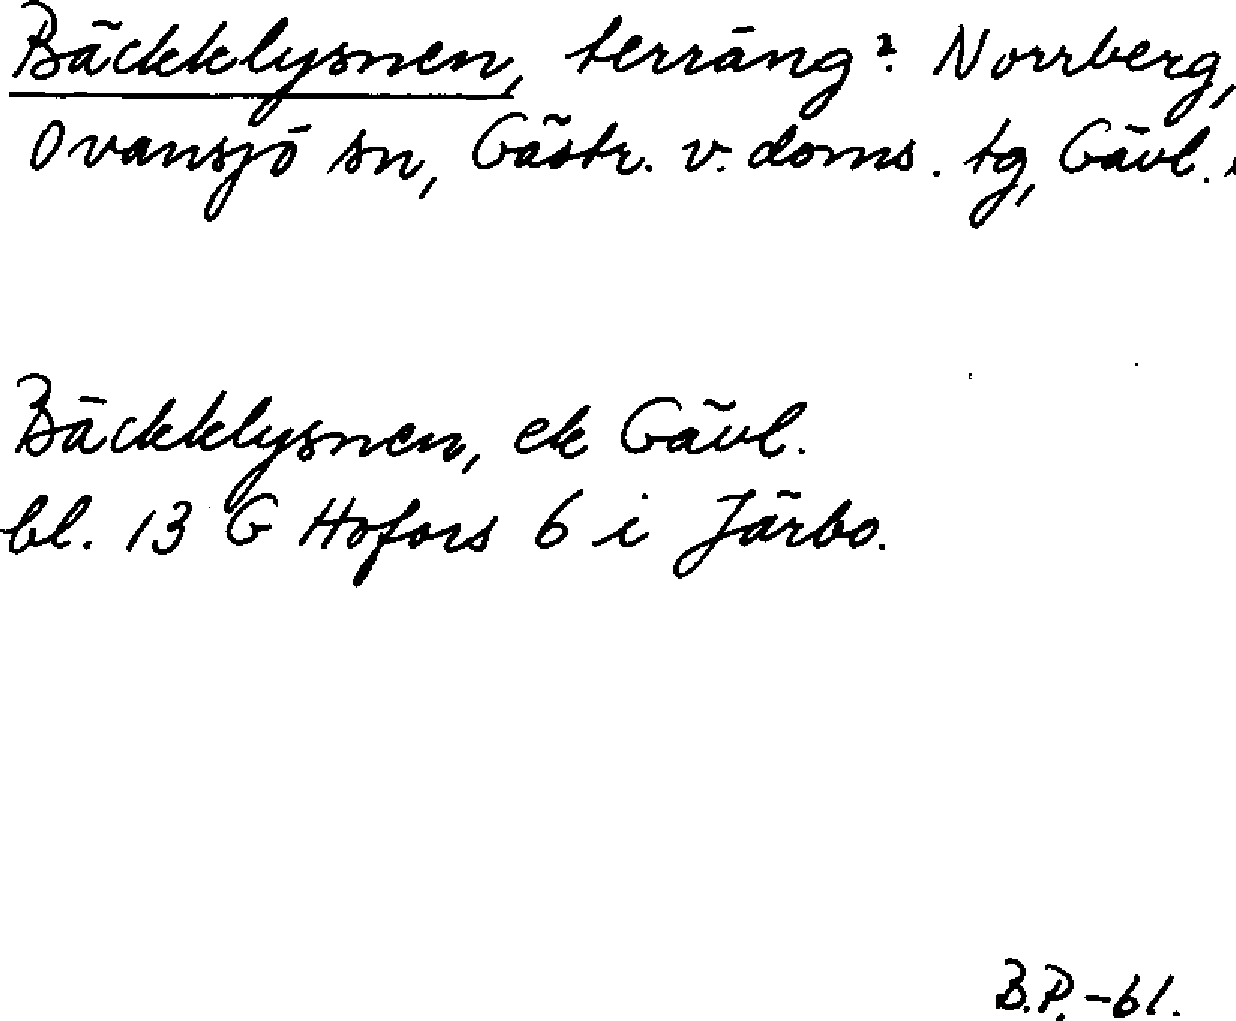 Bäckklysnen, terräng? Norrberg,
Ovansjö sn, Gästr. v. doms. tg, Gävl.
Bäckklysnen, ek Gävl.
bl. 13 G Hofors 6 i Järbo.
B.P.-61.